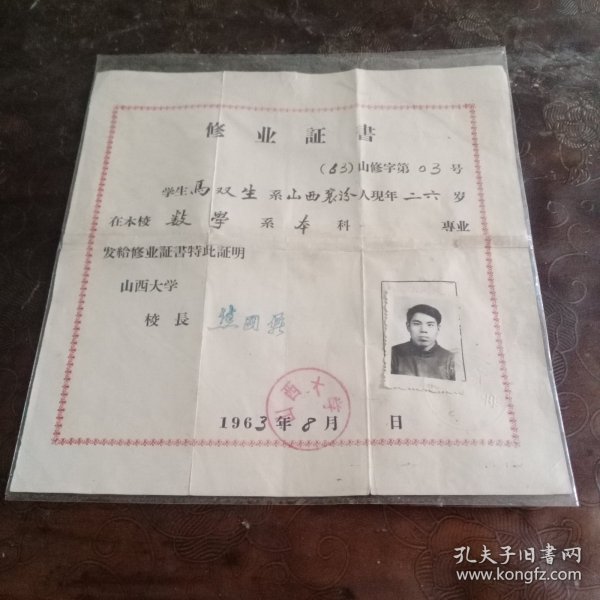 修业証書
(63)山修字第03号
学生馬双生系山西襄汾人現年二六岁
在本校数学系本科 専业
发給修业証書特此証明
山西大学
校長 焦国鼐
山西大学
1963年8月 日
孔夫子旧書网
www.kongfz.com